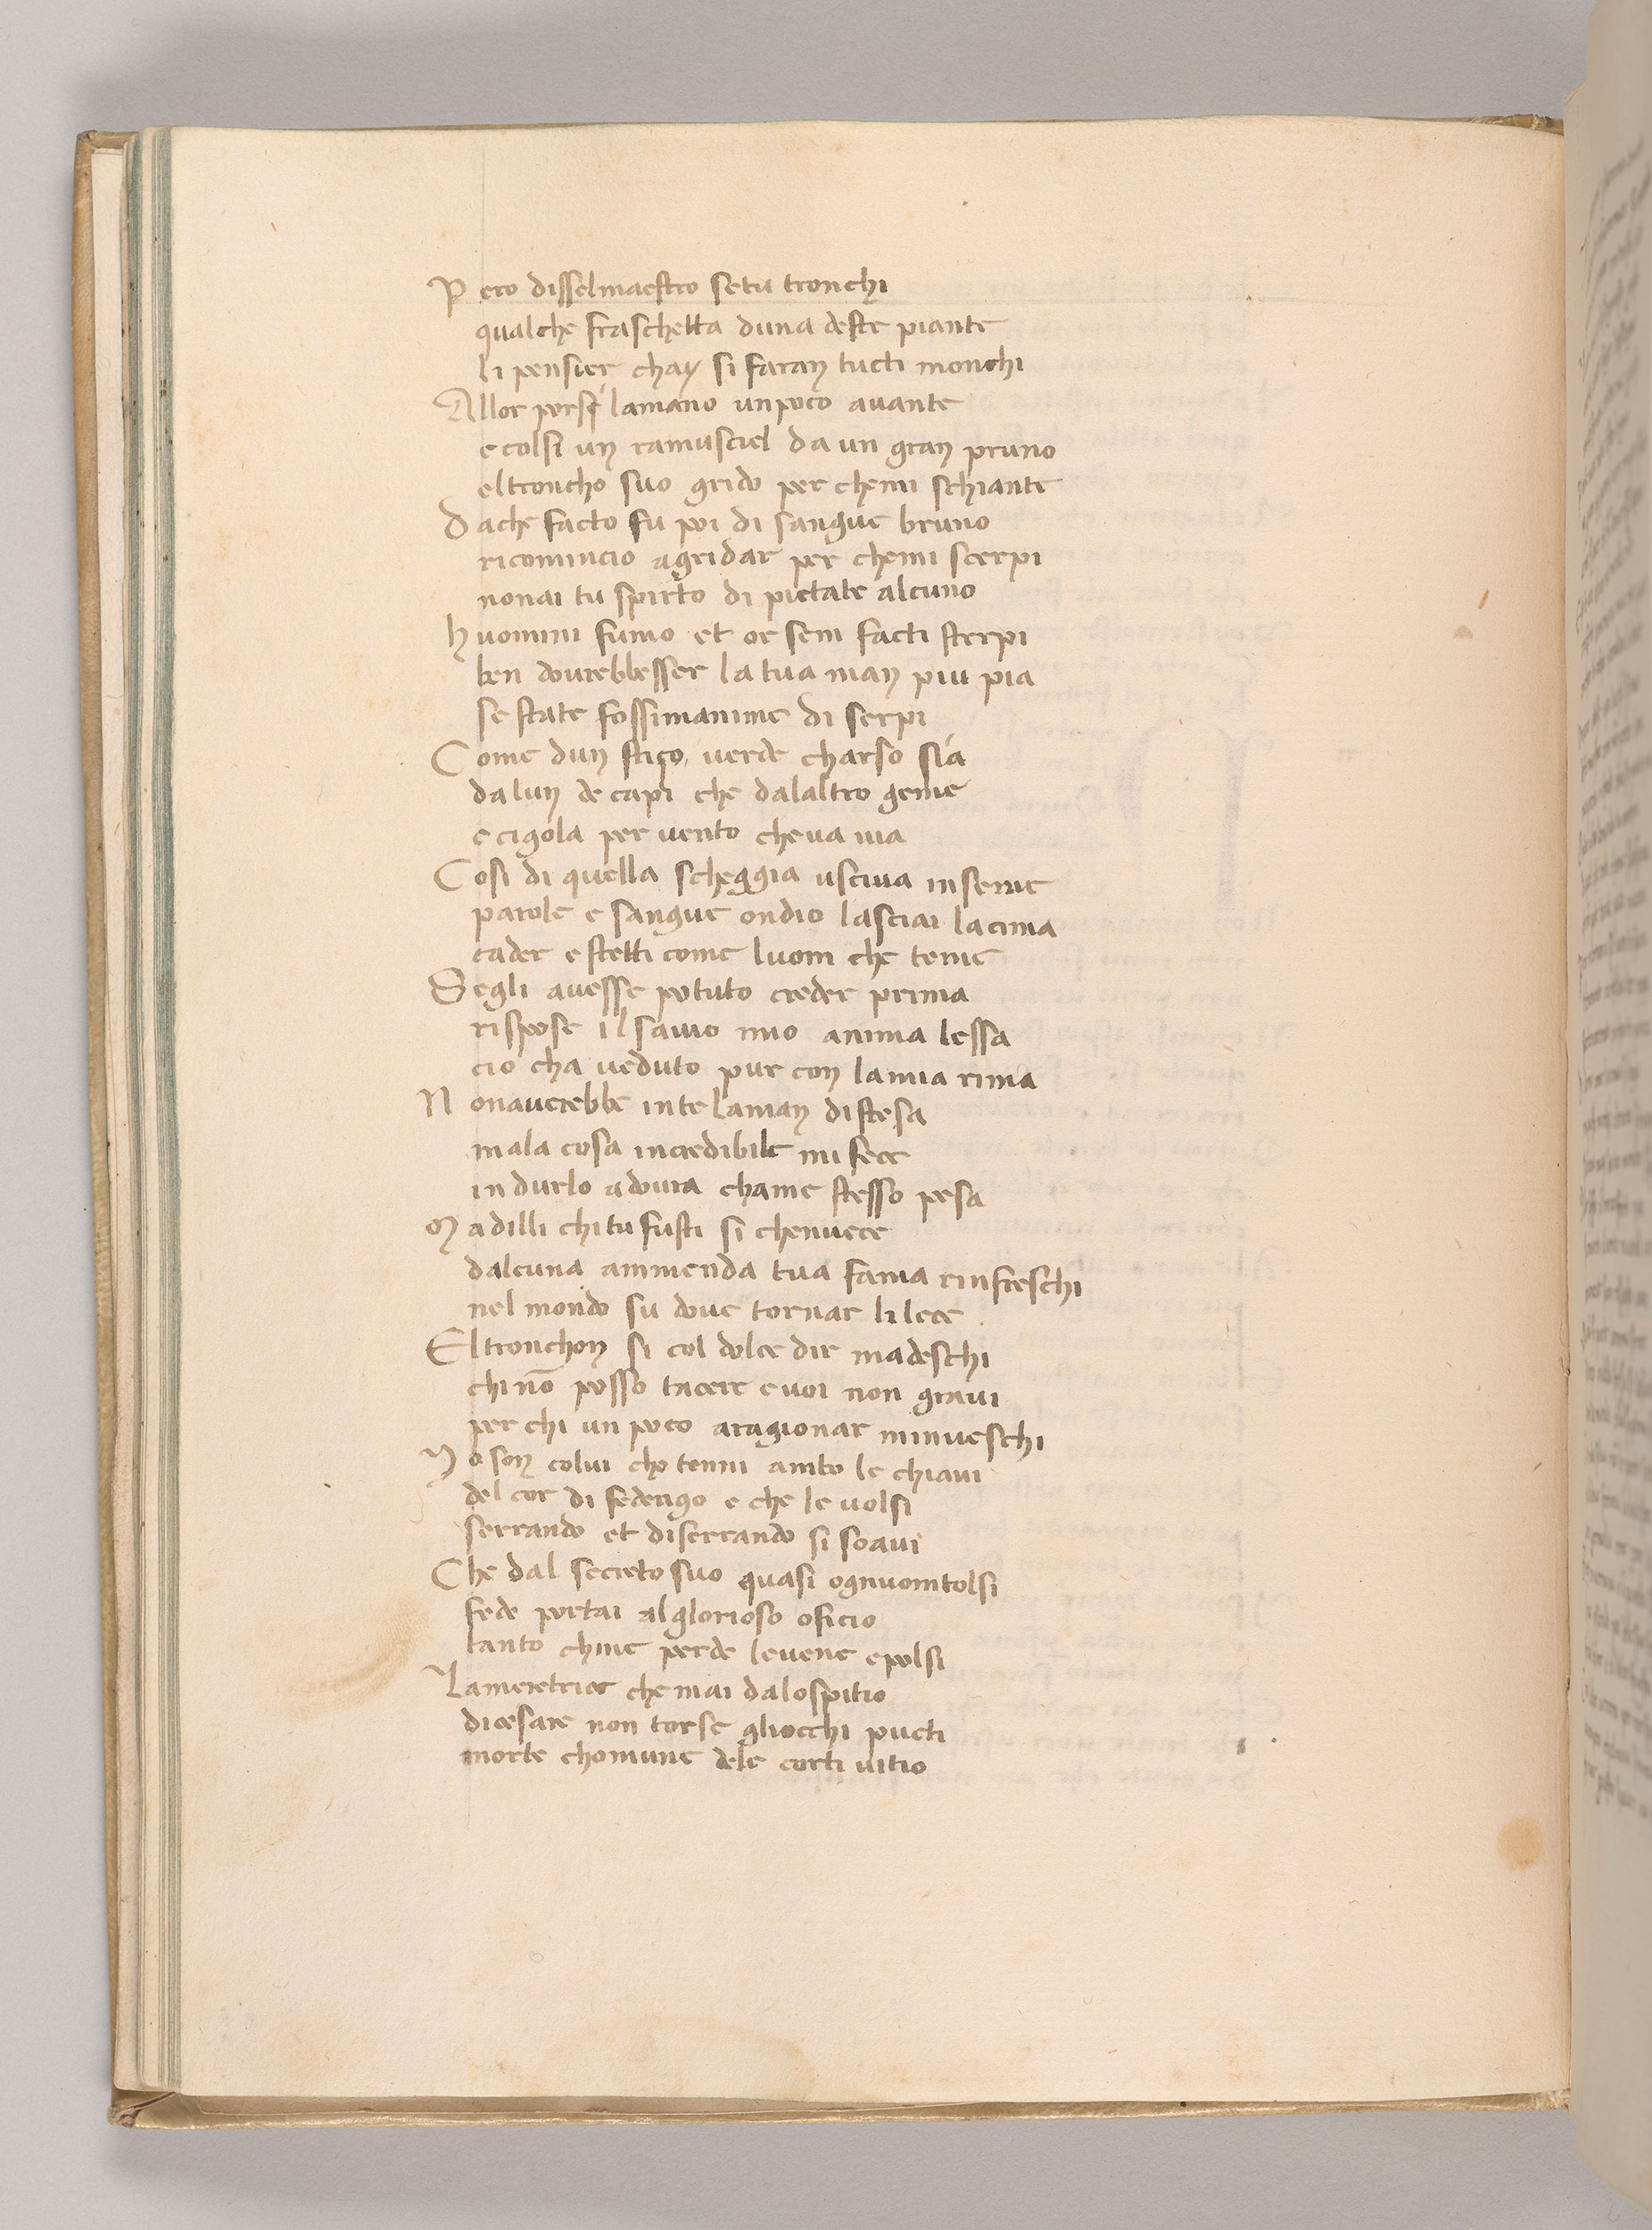 Pero disselmaestro setu tronchi
qualche fraschetta duna deste piante
li pensier chay si faran tucti monchi
Allor porsi lamano unpoco avante
e colsi un ramusciel da un gran pruno
eltroncho suo grido per chemi schiante
dache facto fu poi di sangue bruno
ricomincio agridar per chemi scerpi
nonai tu spirto di pietate alcuno
huomini fumo et or sem facti sterpi
ben dovrebbesser la tua man piu pia
se state fossimanime di serpi
Come dun stiço verde charso sia
dalun de capi che dalaltro geme
e cigola per vento cheva via
Cosi di quella scheggia usciva inseme
parole e sangue ondio lasciai lacima
cader e stetti come luom che teme
Segli avesse potuto creder prima
rispose il savio mio anima lessa
cio cha veduto pur con lamia rima
Nonaverebbe inte laman distesa
mala cosa incredibile mi fece
indurlo adovra chame stesso pesa
Madilli chitu fusti si chenvece
dalcuna ammenda tua fama rinfreschi
nel mondo su dove tornar li lece
Eltronchon si col dolce dir madeschi
chi nō posso tacere evoi non gravi
per chi un poco aragionar minveschi
Yo son colui che tenni ambo le chiavi
del cor di federigo e che le volsi
serrando et diserrando si soavi
Che dal secreto suo quasi ognuomtolsi
fede portai alglorioso oficio
tanto chine perde levene epolsi
Lameretrice che mai dalospitio
dicesare non torse gliocchi pucti
morte chomune dele corti vitio